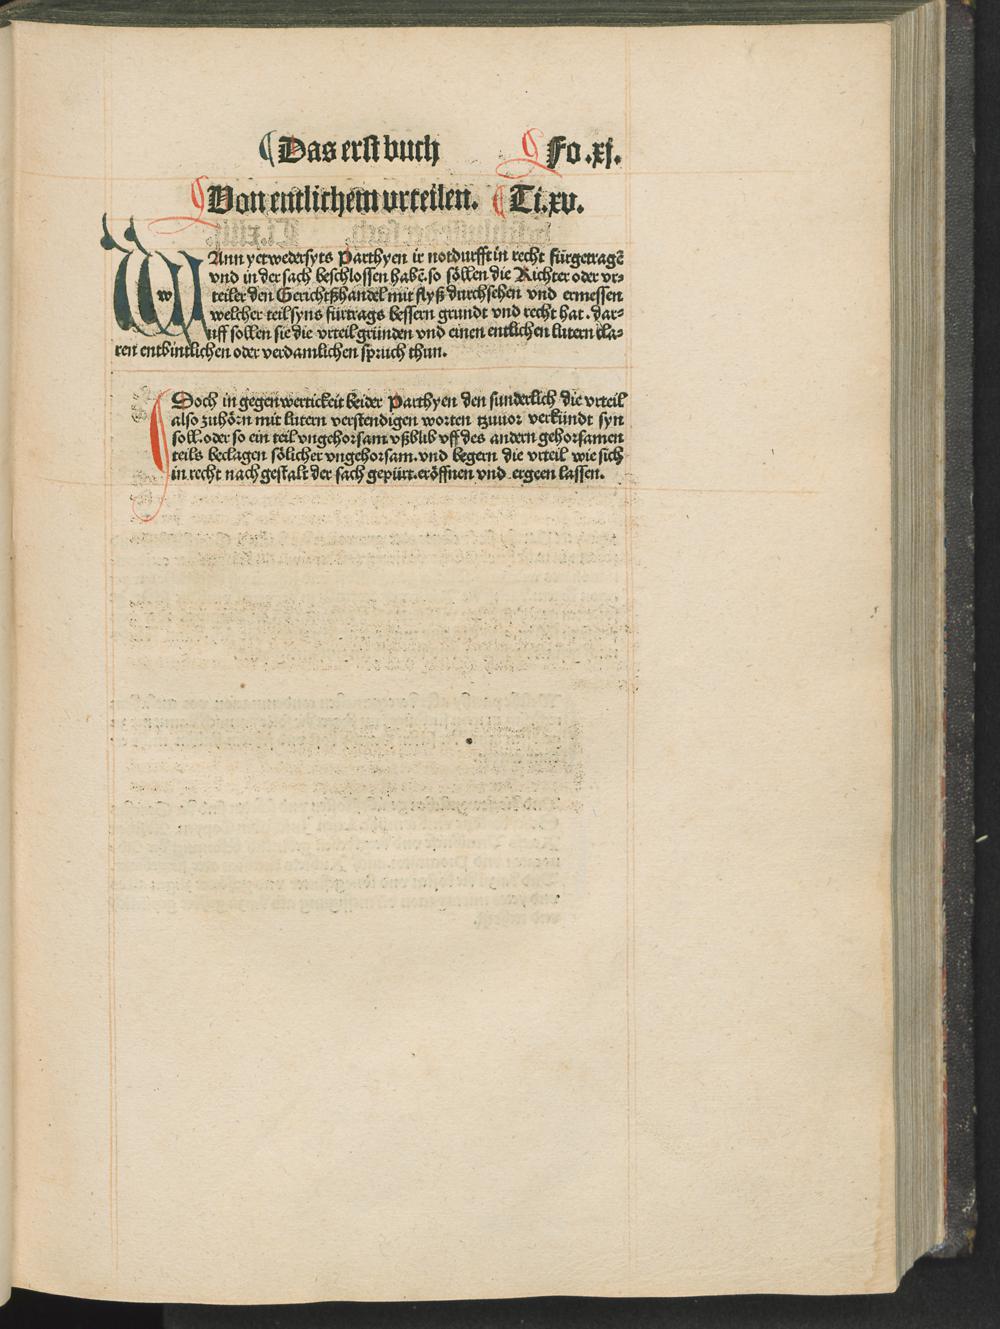 Das erst buch Fo.xj.
Von entlichem vrteilen. Ti.xv.
WAnn yetwedersyts Parthyen ir notdurfft in recht fürgetragẽ
vnd in der sach beschlossen habẽ. so söllen die Richter oder vr-
teiler den Gerichtßhandel mit flyß durchsehen vnd ermessen
welcher teil syns fürtrags bessern grundt vnd recht hat. dar-
uff sollen sie die vrteil gründen vnd einen entlichen lutern kla-
ren entbintlichen oder verdamlichen spruch thun.
Doch in gegenwertickeit beider Parthyen den sunderlich die vrteil
also zuhörn mit lutern verstendigen worten tzuuor verkündt syn
soll. oder so ein teil vngehorsam vßblib vff des andern gehorsamen
teils beclagen sölicher vngehorsam. vnd begern die vrteil wie sich
in recht nach gestalt der sach gepürt. eröffnen vnd ergeen lassen.